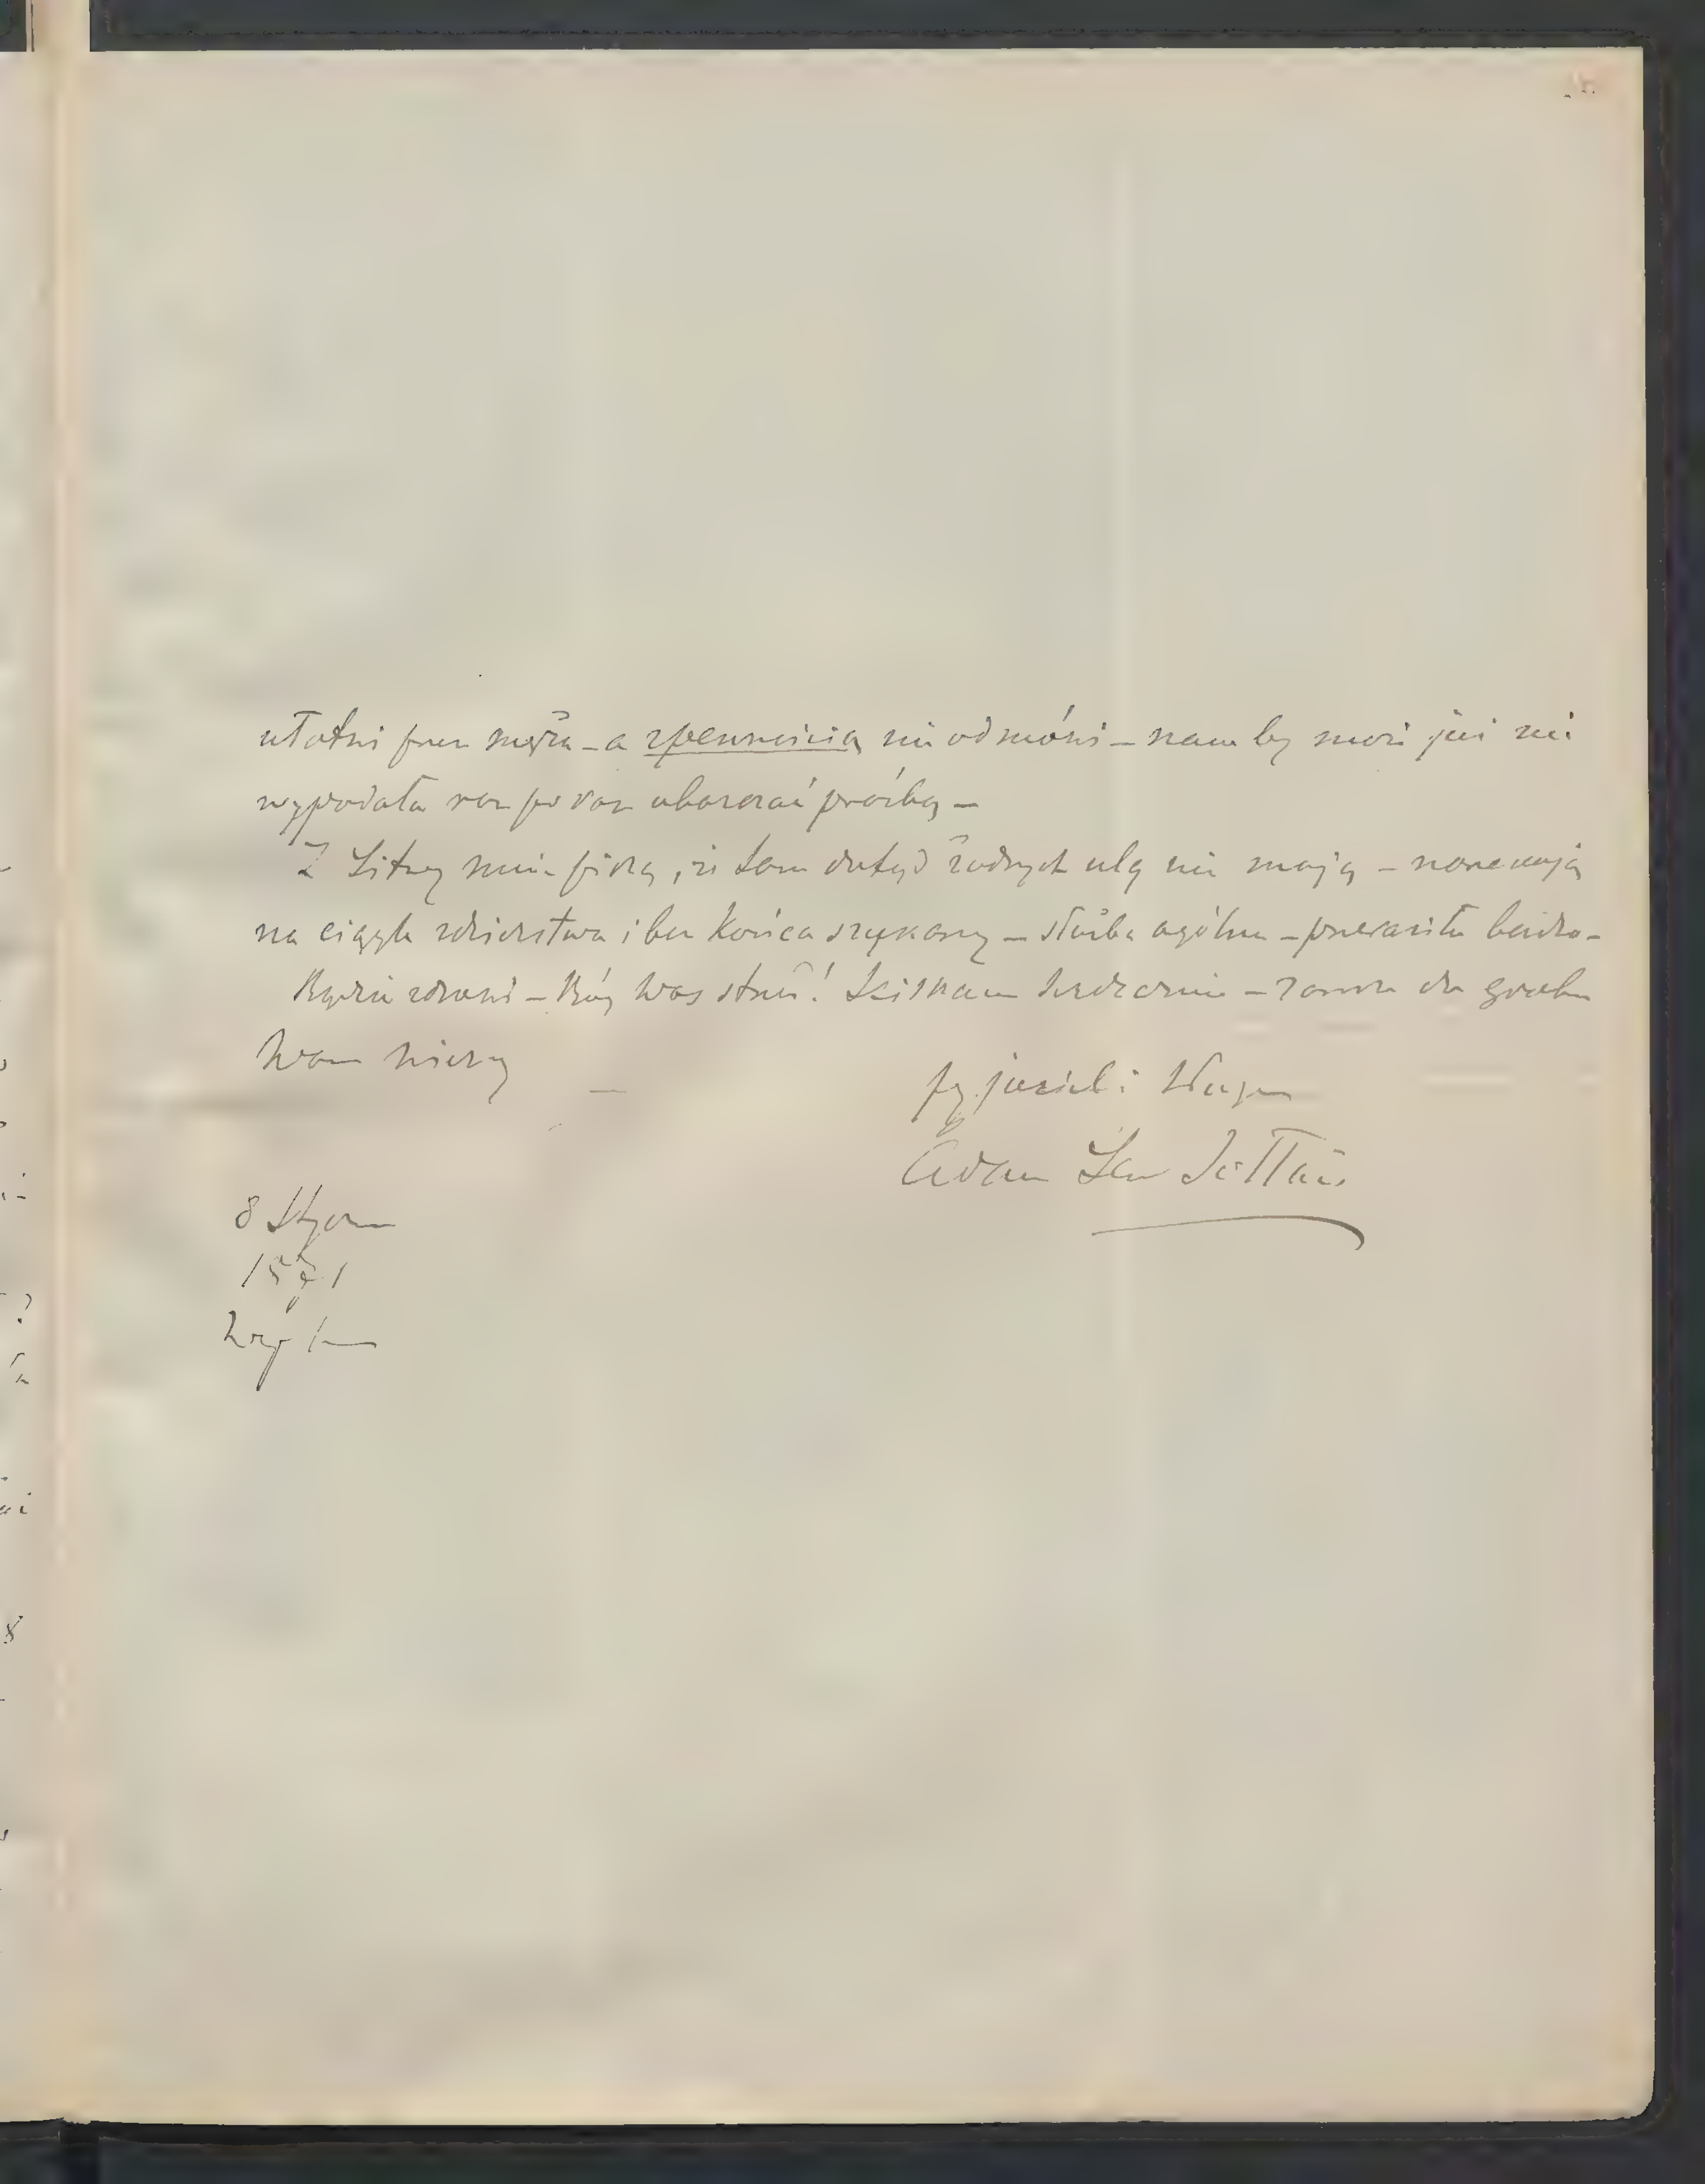 ułatwi przez męża – a zpewnością nie odmówi – nam by może już nie
wypadała raz po raz ubarczać prośbą –
Z Litwy mnie piszą, iż tam dotąd żadnych ulg nie mają – narzekają
na ciągłe zdzierstwa i bez końca szykany – służba ogólna – przeraziła bardzo –
Bądźcie zdrowi – Bóg Was strzeż! Ściskam serdecznie – zawsze do grobu
Wam wierny
przyjaciel i sługa
Adam
8 Stycz